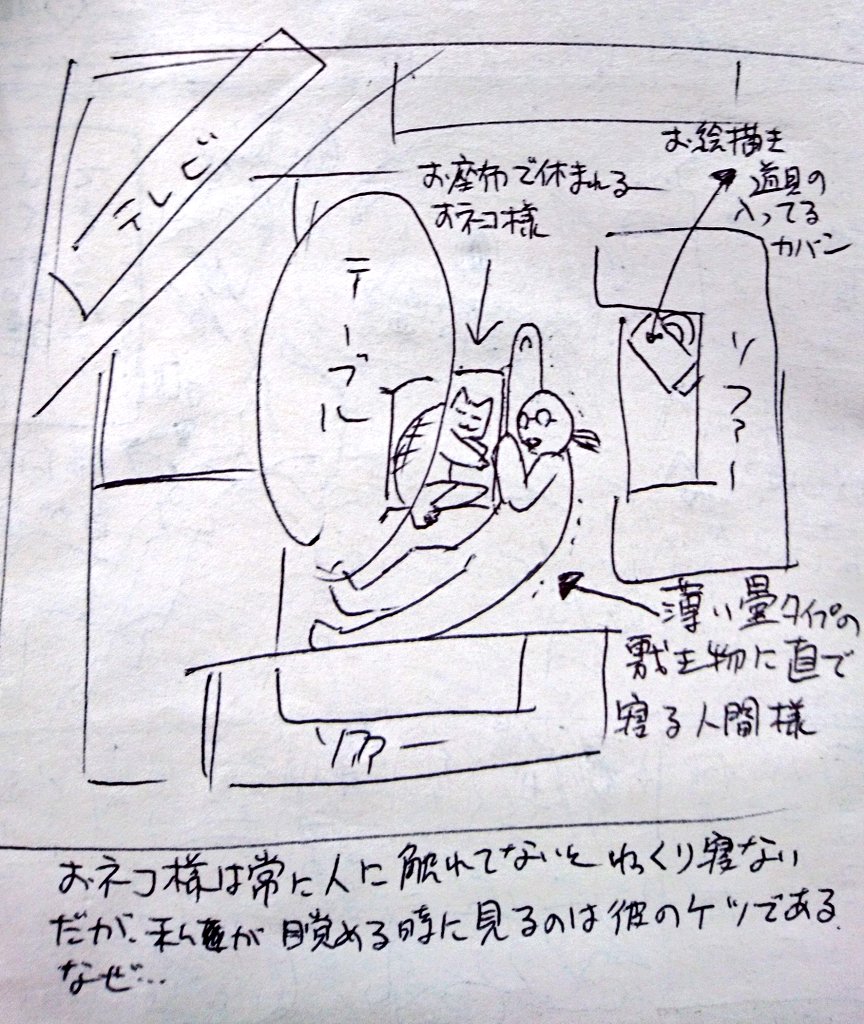 テレビ
お絵描き
道具の
入ってる
カバン
お座布で休まれる
おネコ様
テーブル
ソファー
薄い畳タイプの
敷き物に直で
寝る人間様
ソファー
おネコ様は常に人に触れてないとゆっくり寝ない
だが、私が目覚める時に見るのは彼のケツである
なぜ…